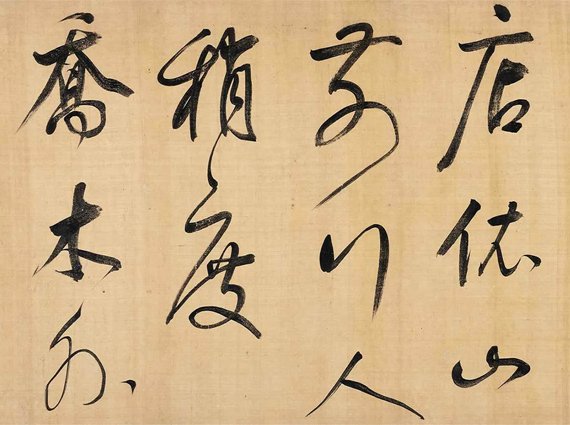 店依山
前行人
稍度
喬木外